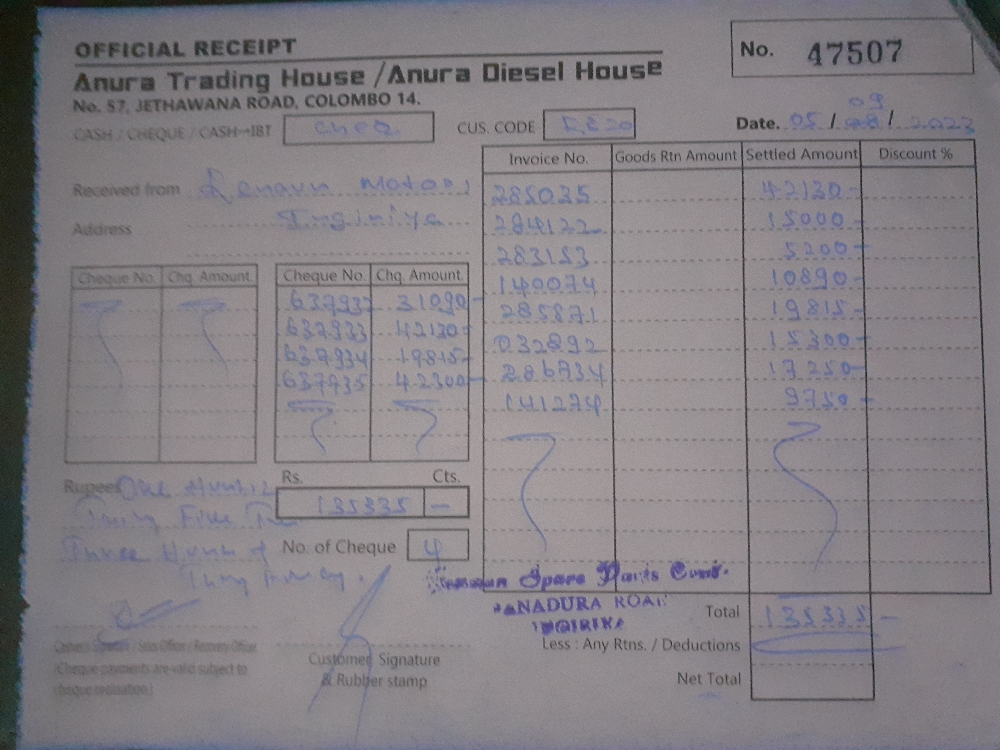 OFFICIAL RECEIPT
No. 47507
Anura Trading House / Anura Diesel House
No. 57, JETHAWANA ROAD, COLOMBO 14.
CASH / CHEQUE / CASH-IBT Cheq CUS. CODE
Date. 05 / 09 / 2023
Received from Motors
Address Inginiya
Invoice No. Goods Rtn Amount Settled Amount Discount %
285035 42130-
284122 15000-
283153 5200-
140074 10890-
285871 19815-
032892 15300-
286734 17250-
141274 9750-
Cheque No. Chq. Amount Cheque No. Chq. Amount.
637932 31090-
637933 42130-
637934 19815-
637935 42300-
Rs. Cts.
135335 -
Rupees One
Five
Three
No. of Cheque 4
Spare Parts
PANADURA ROAD
INGIRIYA
Total 135335 -
Less : Any Rtns. / Deductions
Net Total
Cashier's Signature / Sales Officer / Recovery Officer
(Cheque payments are valid subject to
cheque realisation.)
Customer Signature
& Rubber stamp